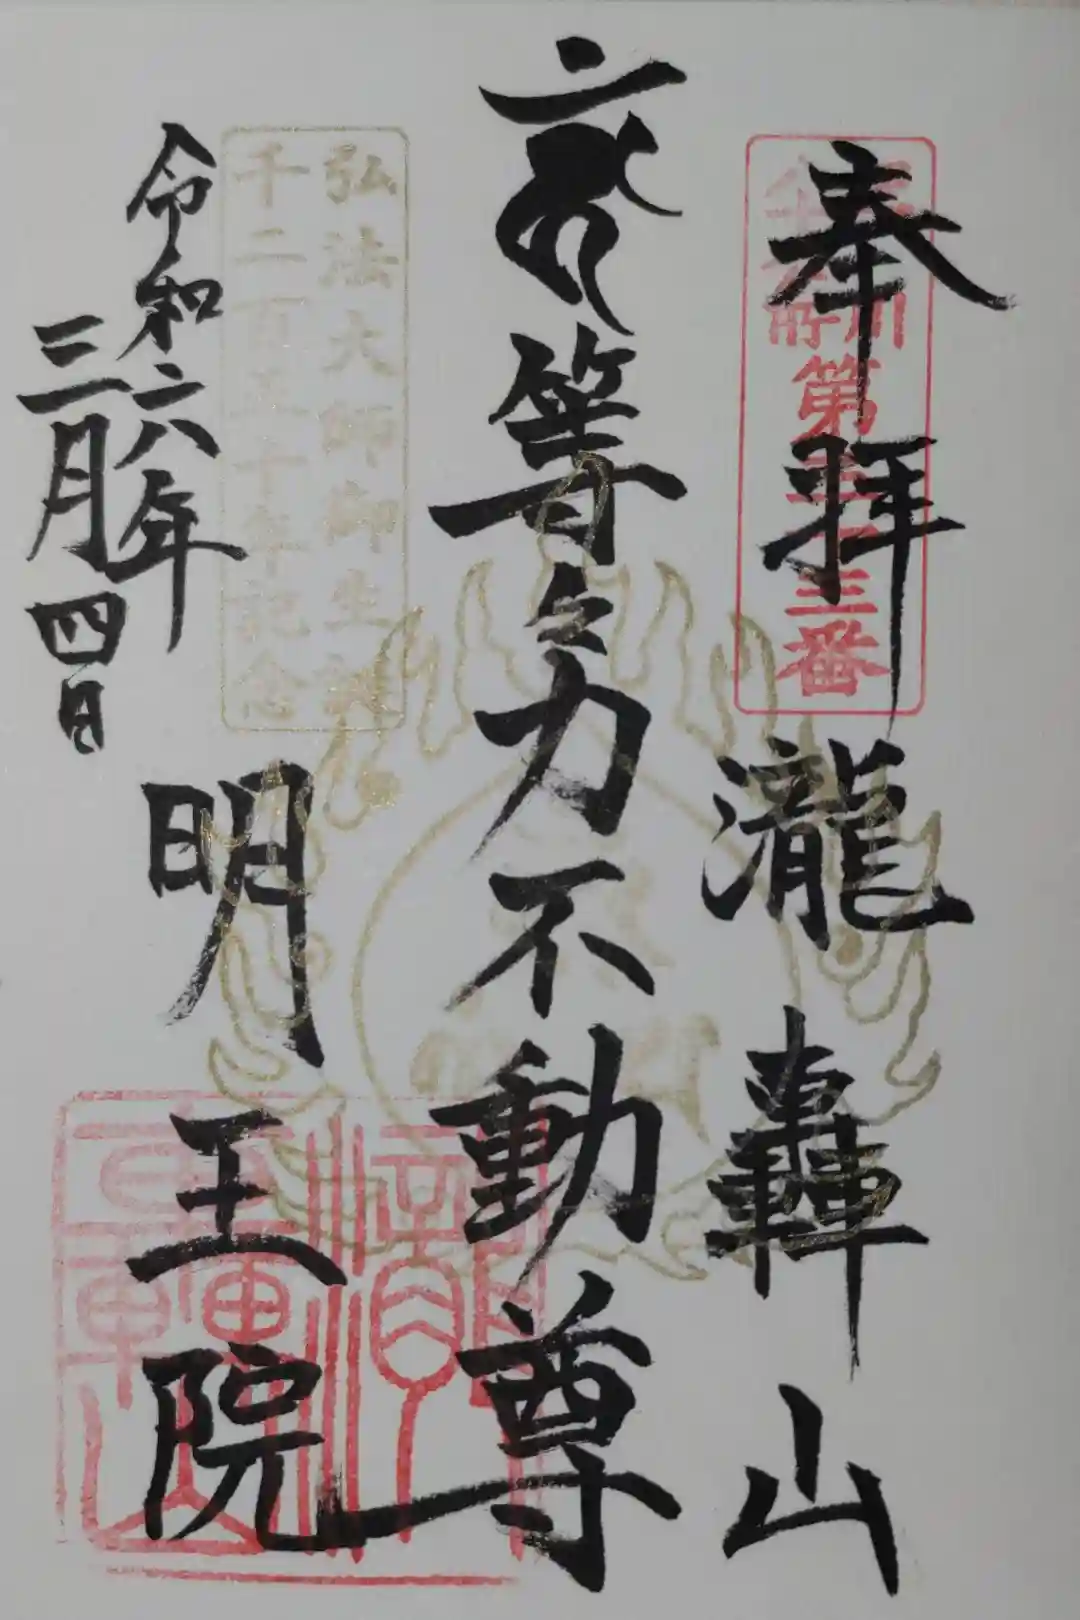 奉拝
瀧轟山
第
三番
等力不動尊
弘法大師御生誕
千二百五十年記念
令和六年
三月四日
明王院